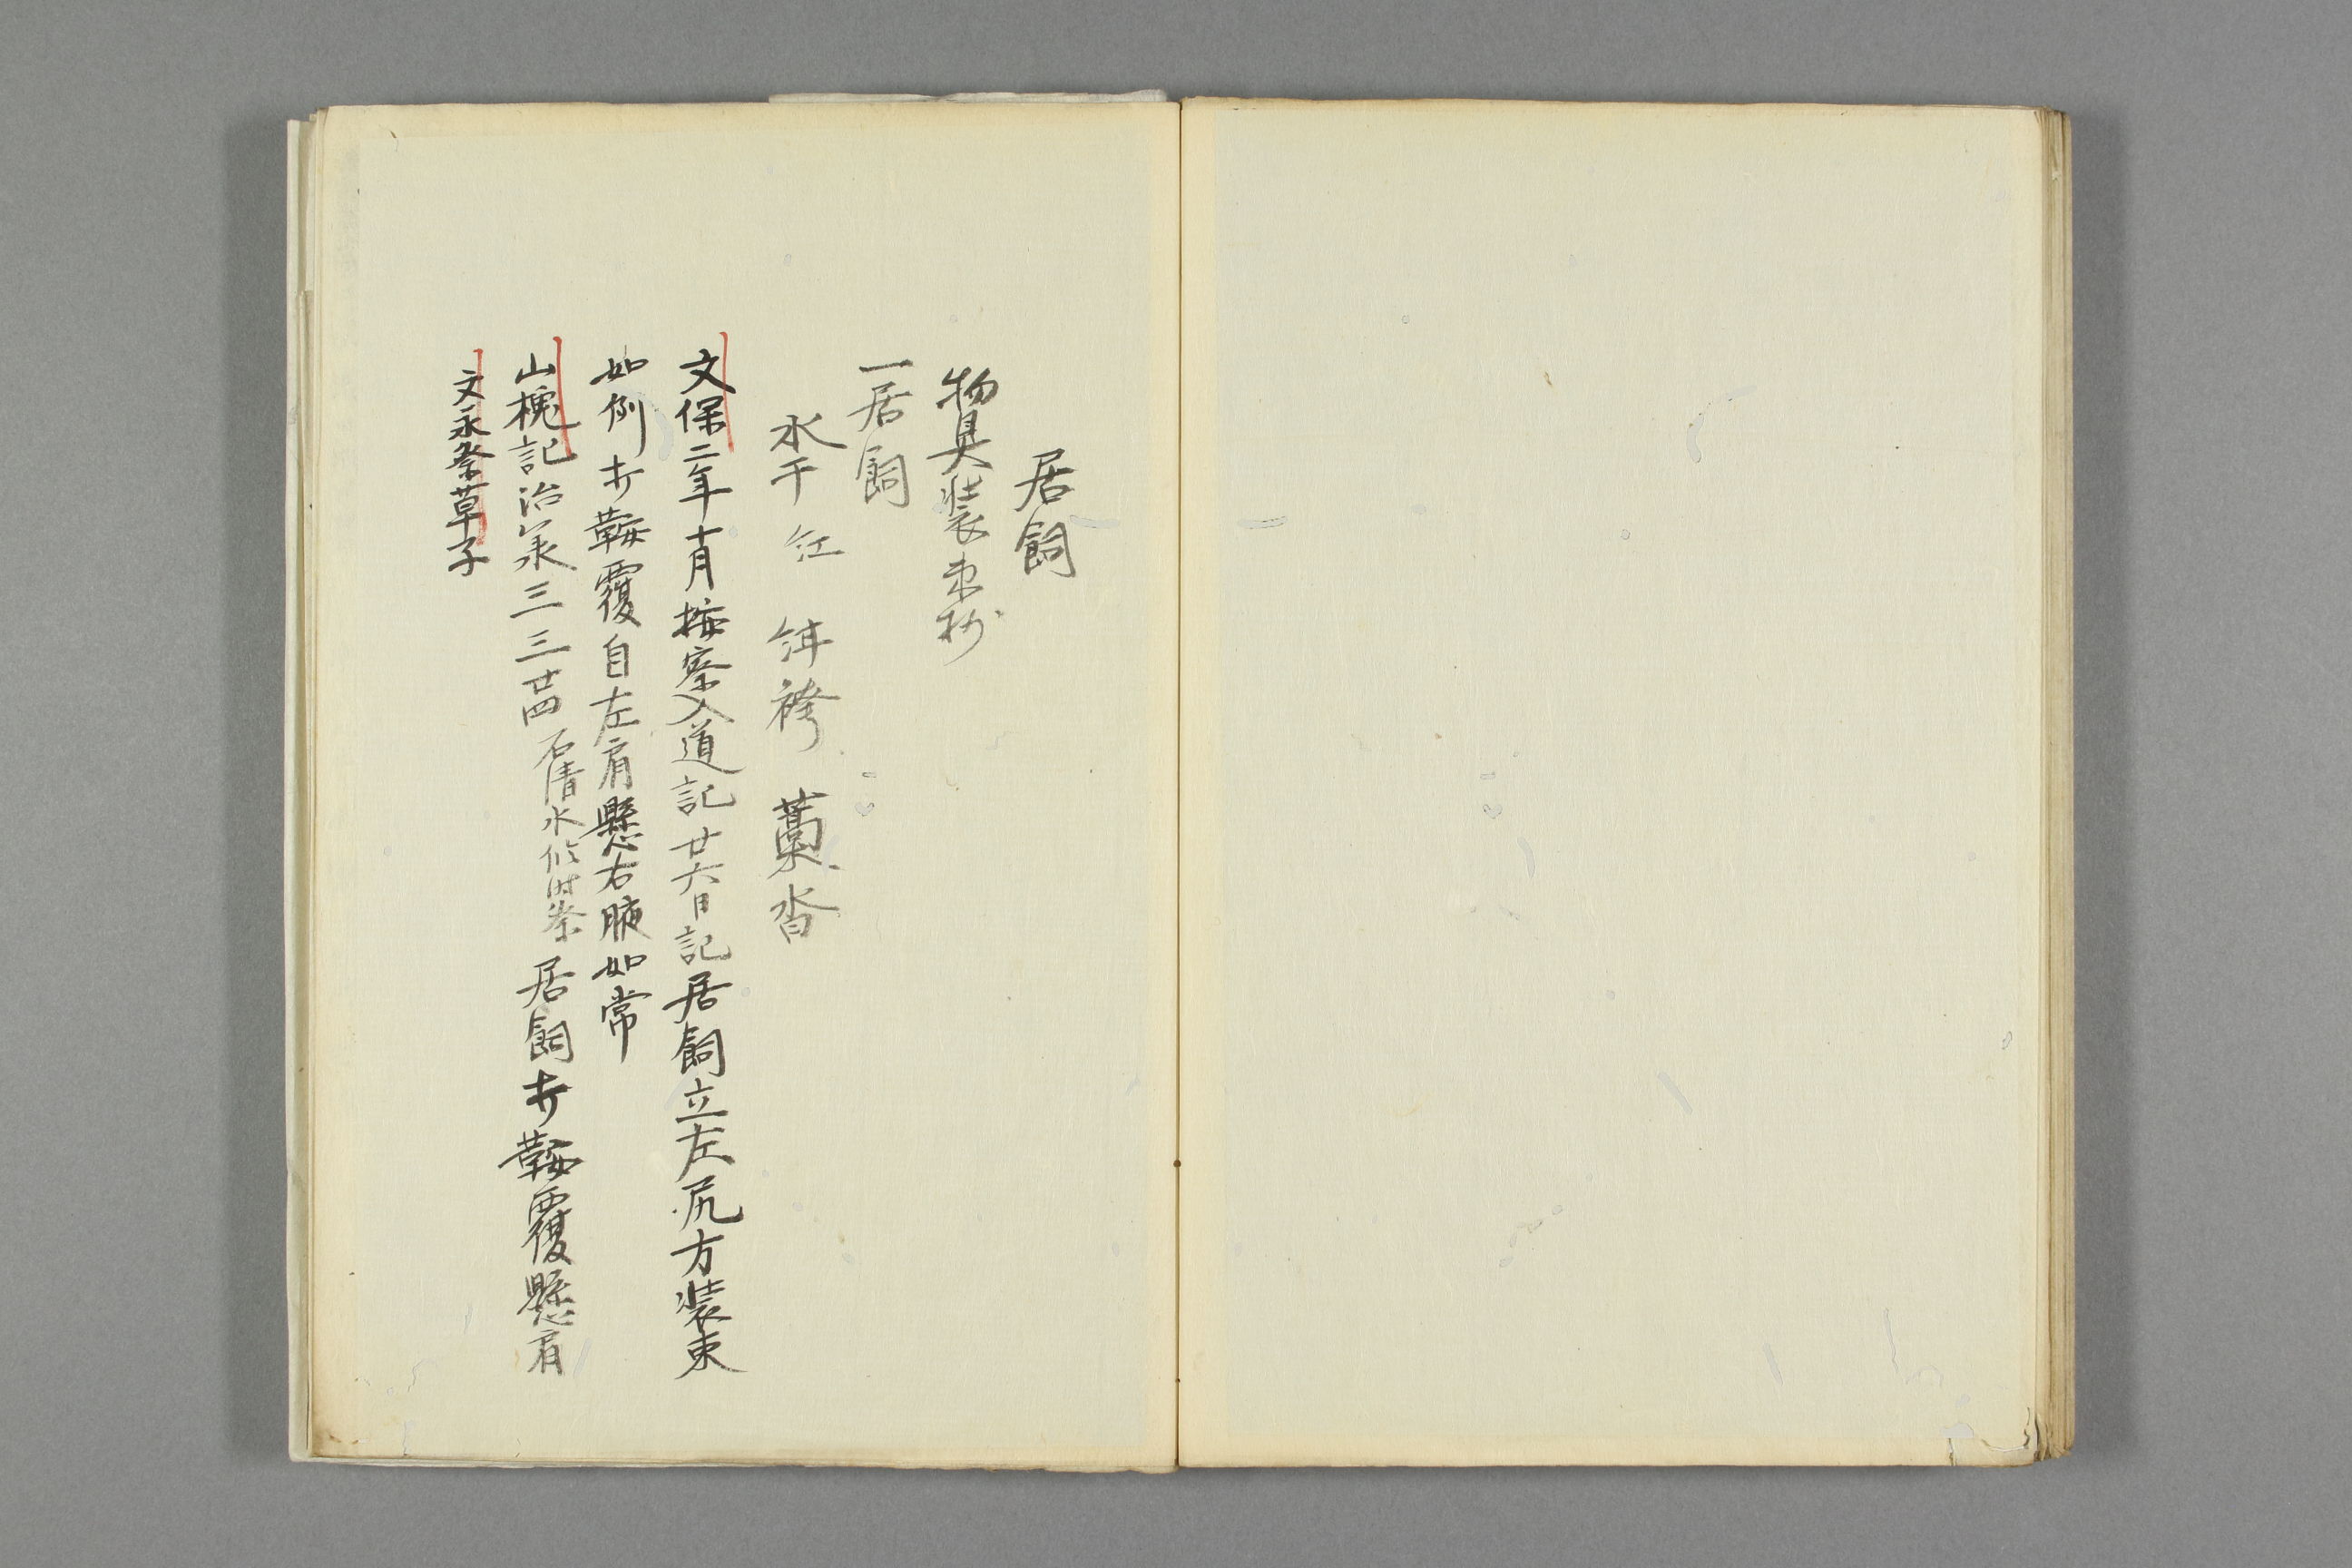 居飼
物具装束抄
一居飼
水干 紅 袴 藁沓
文保二年十月按察入道記廿六日記居飼立左尻方装束
如例折鞍覆自左肩懸右腋如常
山槐記治承三三廿四石清水臨時祭居飼折鞍覆懸肩
文永祭草子